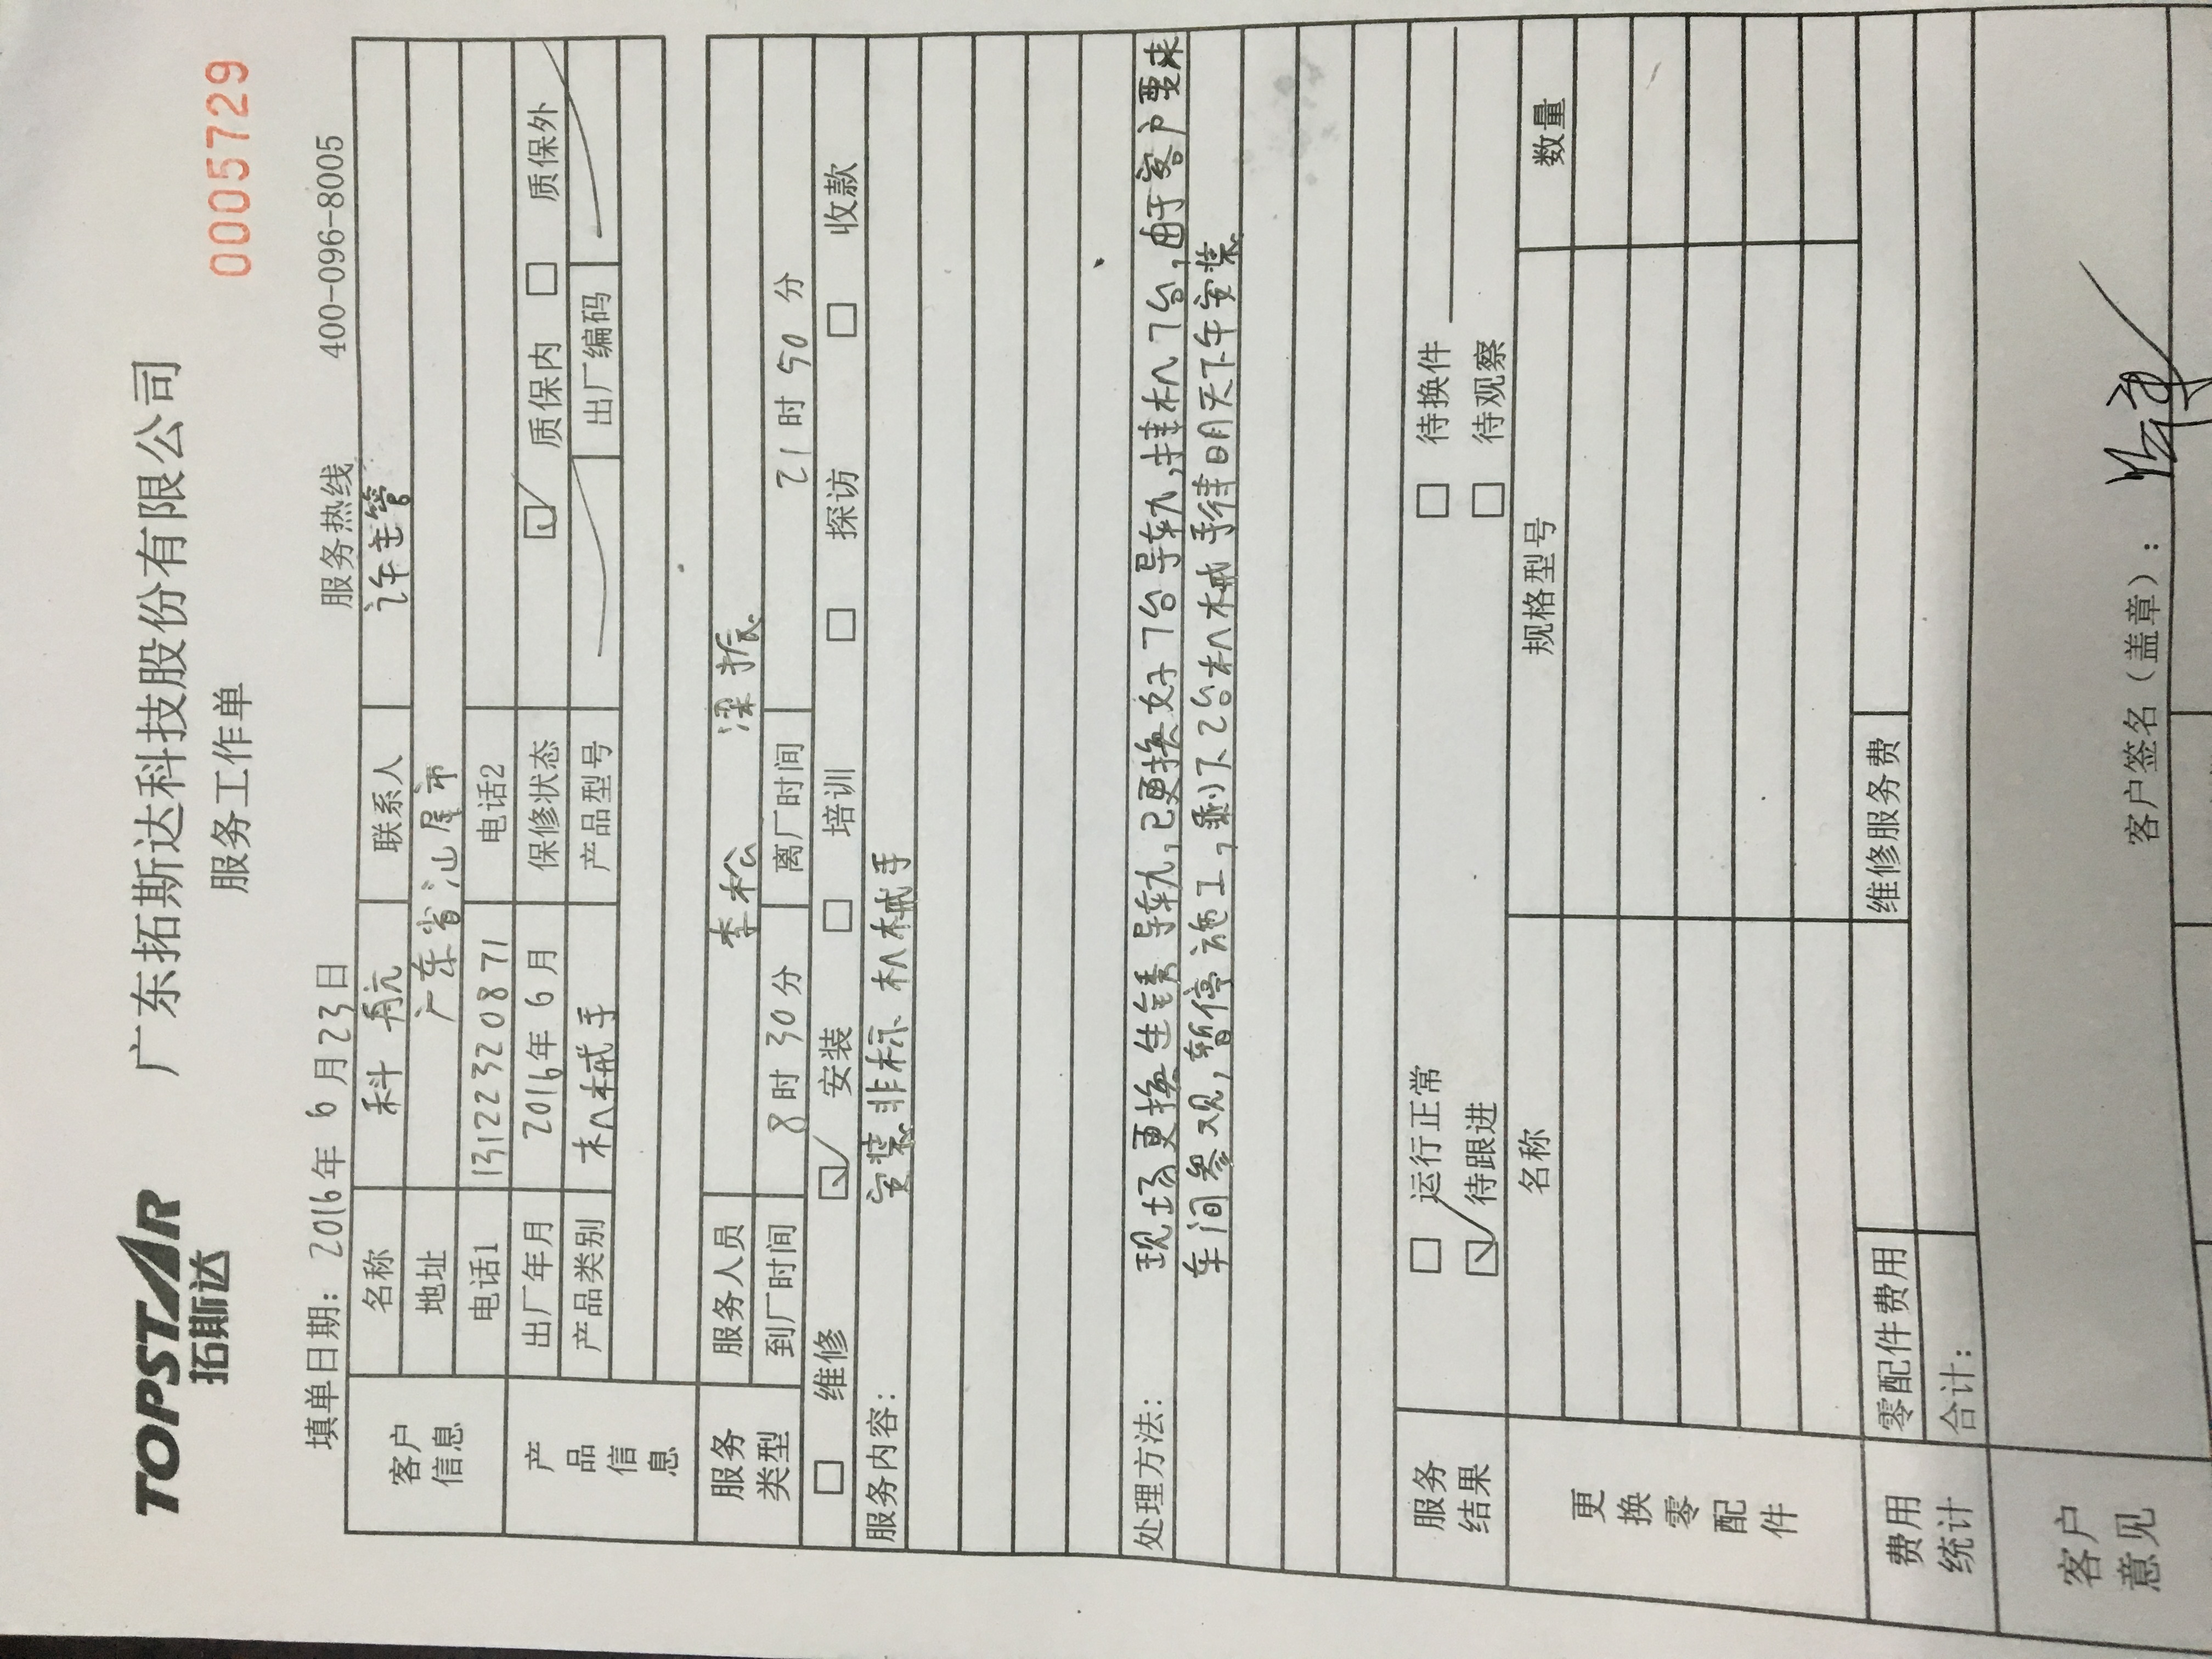 TOPSTAR
拓斯达
广东拓斯达科技股份有限公司
服务工作单
0005729
填单日期：2016年 6 月 23日
服务热线 400-096-8005
客户信息
名称 科 联系人 许主管
地址 广东省汕尾市
电话1 13122320871 电话2
产品信息
出厂年月 2016年 6 月 保修状态 ☑ 质保内 □ 质保外
产品类别 机械手 产品型号 出厂编码
服务类型
服务人员 李松 梁振
到厂时间 8 时 30 分 离厂时间 21 时 50 分
□ 维修 ☑ 安装 □ 培训 □ 探访 □ 收款
服务内容： 安装非标机械手
处理方法： 现场更换生锈导轨,已更换好7台导轨,挂机7台,由于客户要求
车间参观,暂停施工,剩下2台机械手待明天下午安装.
服务结果
□ 运行正常 □ 待换件
☑ 待跟进 □ 待观察
更换零配件
名称 规格型号 数量
费用统计
零配件费用 维修服务费
合计：
客户意见
客户签名（盖章）：